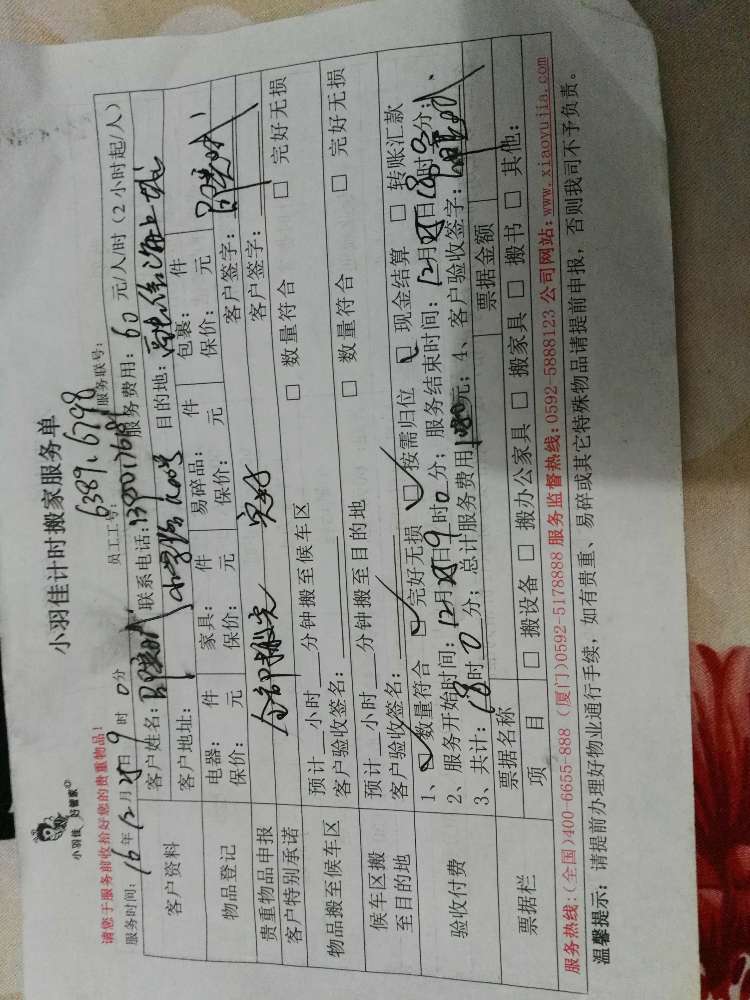 小羽佳 好管家
小羽佳计时搬家服务单
请您于服务前收拾好您的贵重物品!
员工工号: 6389、6798 服务联号:
服务时间: 16年12月25日9时0分 服务费用: 60元/人/时(2小时起/人)
客户资料
客户姓名: 联系电话: 目的地:
客户地址:
物品登记
电器: 件 家具: 件 易碎品: 件 包裹: 件
保价: 元 保价: 元 保价: 元 保价: 元
贵重物品申报 客户签字:
客户特别承诺 全部搬完 完好 客户签字:
物品搬至候车区
预计__小时__分钟搬至候车区 □ 数量符合 □ 完好无损
客户验收签名:
候车区搬至目的地
预计__小时__分钟搬至目的地 □ 数量符合 □ 完好无损
客户验收签名:
验收付费
1、□数量符合 □完好无损 □按需归位 □现金结算 □转账汇款
2、服务开始时间: 12月25日9时0分; 服务结束时间: 12月25日18时0分;
3、共计: 18时0分; 总计服务费用1080元; 4、客户验收签字:
票据栏
票据名称 票据金额
项 目 □ 搬设备 □ 搬办公家具 □ 搬家具 □ 搬书 □ 其他:
服务热线:(全国)400-6655-888 (厦门)0592-5178888 服务监督热线:0592-5888123 公司网站:www.xiaoyujia.com
温馨提示: 请提前办理好物业通行手续, 如有贵重、易碎或其它特殊物品请提前申报, 否则我司不予负责。